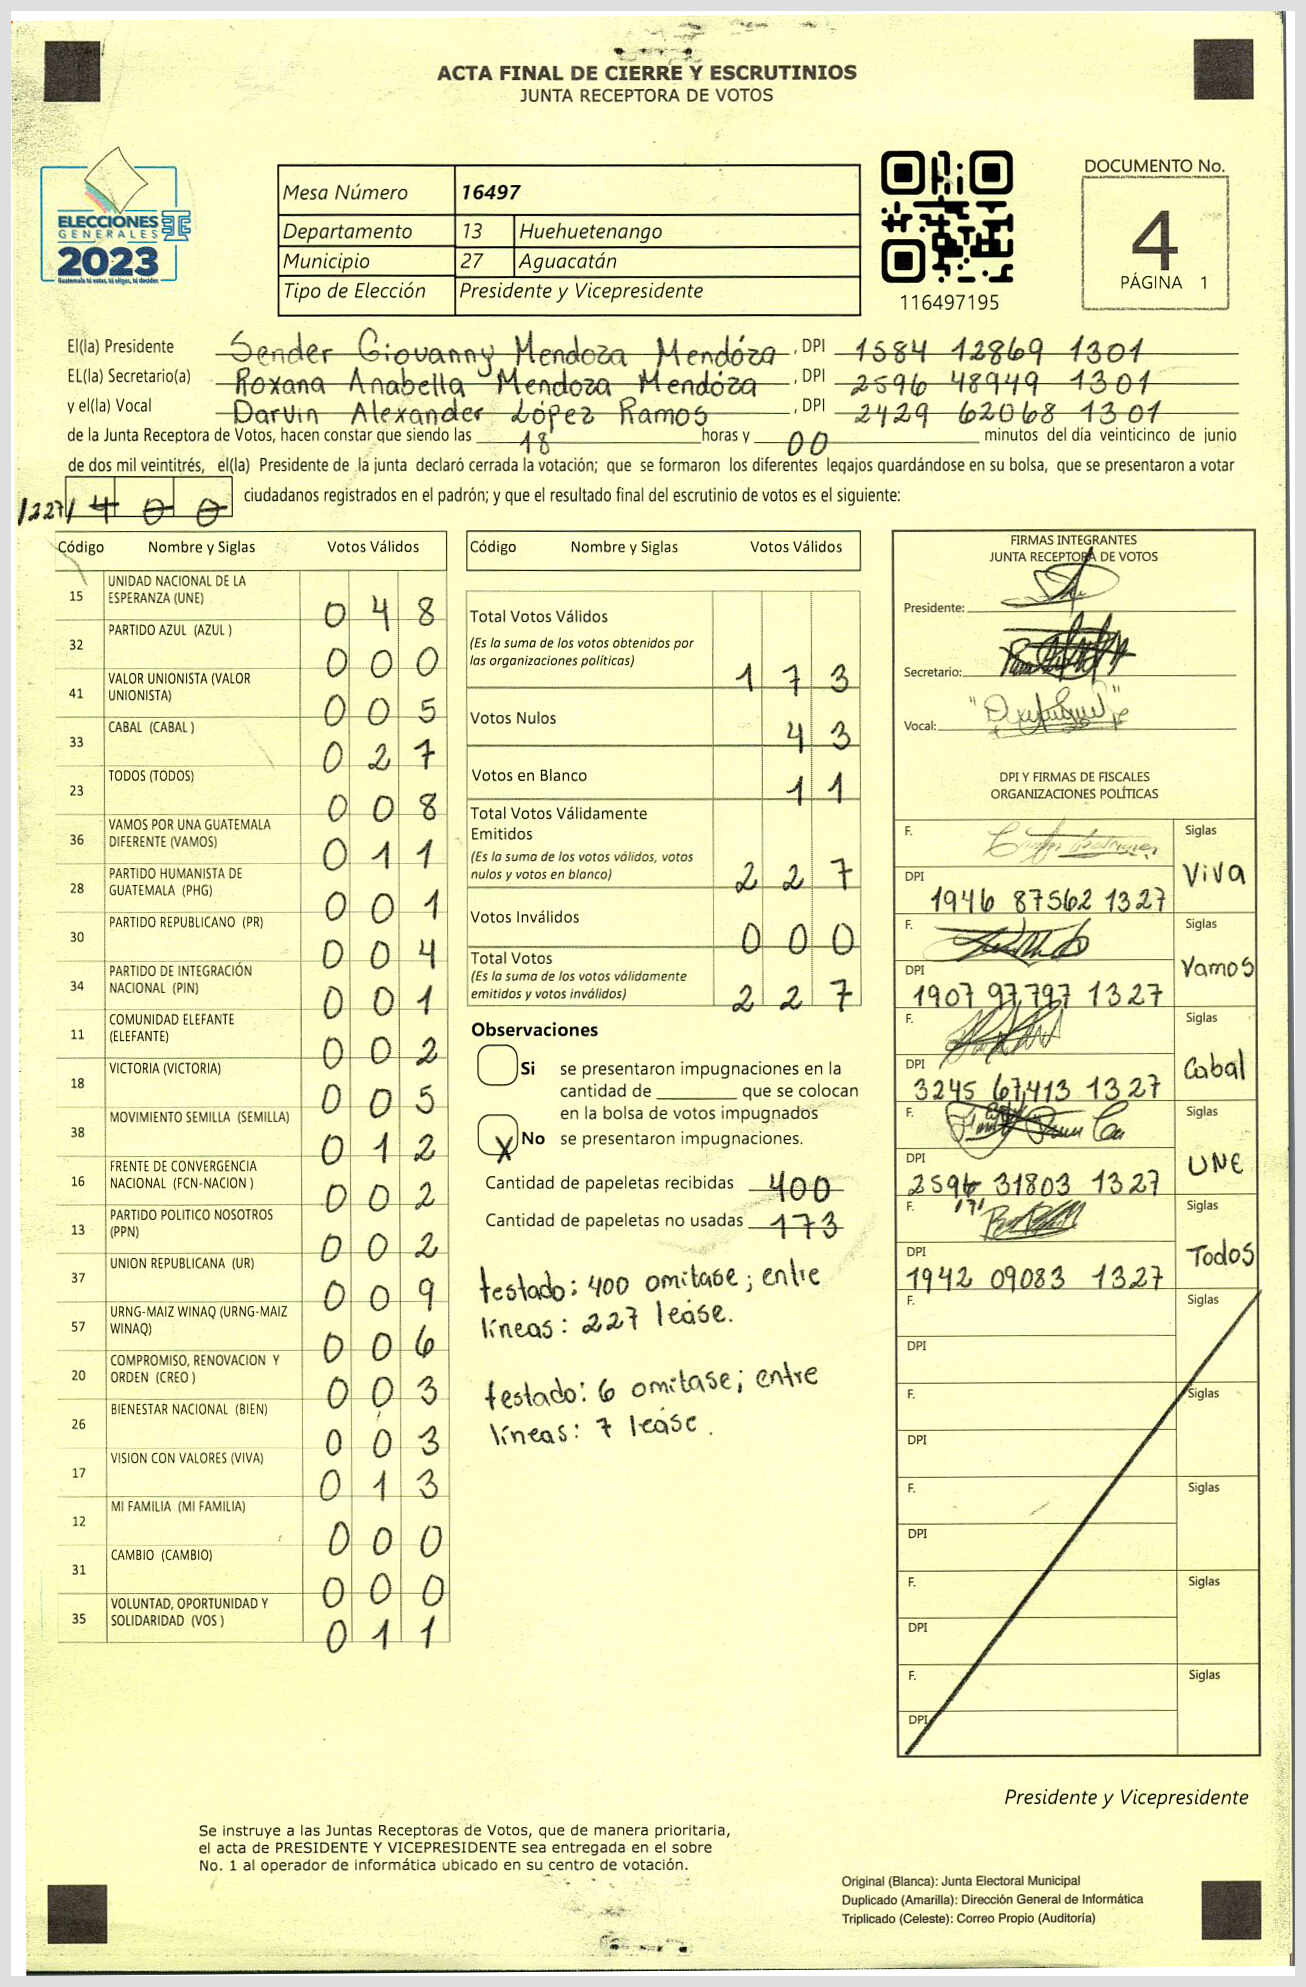 ACTA FINAL DE CIERRE Y ESCRUTINIOS
JUNTA RECEPTORA DE VOTOS
ELECCIONES
GENERALES
2023
Guatemala tú votas, tú eliges, tú decides
Mesa Número 16497
Departamento 13 Huehuetenango
Municipio 27 Aguacatán
Tipo de Elección Presidente y Vicepresidente
116497195
DOCUMENTO No.
4
PÁGINA 1
El(la) Presidente Sender Giovanny Mendoza Mendóza, DPI 1584 12869 1301
EL(la) Secretario(a) Roxana Anabella Mendoza Mendóza, DPI 2596 48949 1301
y el(la) Vocal Darvin Alexander López Ramos, DPI 2429 62068 1301
de la Junta Receptora de Votos, hacen constar que siendo las 18 horas y 00 minutos del día veinticinco de junio
de dos mil veintitrés, el(la) Presidente de la junta declaró cerrada la votación; que se formaron los diferentes legajos quardándose en su bolsa, que se presentaron a votar
/227/ 400 ciudadanos registrados en el padrón; y que el resultado final del escrutinio de votos es el siguiente:
Código Nombre y Siglas Votos Válidos
15 UNIDAD NACIONAL DE LA ESPERANZA (UNE) 0 4 8
32 PARTIDO AZUL (AZUL ) 0 0 0
41 VALOR UNIONISTA (VALOR UNIONISTA) 0 0 5
33 CABAL (CABAL ) 0 2 7
23 TODOS (TODOS) 0 0 8
36 VAMOS POR UNA GUATEMALA DIFERENTE (VAMOS) 0 1 1
28 PARTIDO HUMANISTA DE GUATEMALA (PHG) 0 0 1
30 PARTIDO REPUBLICANO (PR) 0 0 4
34 PARTIDO DE INTEGRACIÓN NACIONAL (PIN) 0 0 1
11 COMUNIDAD ELEFANTE (ELEFANTE) 0 0 2
18 VICTORIA (VICTORIA) 0 0 5
38 MOVIMIENTO SEMILLA (SEMILLA) 0 1 2
16 FRENTE DE CONVERGENCIA NACIONAL (FCN-NACION ) 0 0 2
13 PARTIDO POLITICO NOSOTROS (PPN) 0 0 2
37 UNION REPUBLICANA (UR) 0 0 9
57 URNG-MAIZ WINAQ (URNG-MAIZ WINAQ) 0 0 6
20 COMPROMISO, RENOVACION Y ORDEN (CREO ) 0 0 3
26 BIENESTAR NACIONAL (BIEN) 0 0 3
17 VISION CON VALORES (VIVA) 0 1 3
12 MI FAMILIA (MI FAMILIA) 0 0 0
31 CAMBIO (CAMBIO) 0 0 0
35 VOLUNTAD, OPORTUNIDAD Y SOLIDARIDAD (VOS ) 0 1 1
Código Nombre y Siglas Votos Válidos
Total Votos Válidos
(Es la suma de los votos obtenidos por
las organizaciones políticas) 1 7 3
Votos Nulos 4 3
Votos en Blanco 1 1
Total Votos Válidamente
Emitidos
(Es la suma de los votos válidos, votos
nulos y votos en blanco) 2 2 7
Votos Inválidos 0 0 0
Total Votos
(Es la suma de los votos válidamente
emitidos y votos inválidos) 2 2 7
Observaciones
Si se presentaron impugnaciones en la
cantidad de ________ que se colocan
en la bolsa de votos impugnados
X No se presentaron impugnaciones.
Cantidad de papeletas recibidas 400
Cantidad de papeletas no usadas 173
testado: 400 omitase; entre
líneas: 227 léase.
testado: 6 omitase; entre
líneas: 7 léase.
FIRMAS INTEGRANTES
JUNTA RECEPTORA DE VOTOS
Presidente:
Secretario:
Vocal:
DPI Y FIRMAS DE FISCALES
ORGANIZACIONES POLÍTICAS
F. Siglas
DPI 1946 87562 1327 Viva
F. Siglas
DPI 1907 97,797 1327 Vamos
F. Siglas
DPI 3245 67,413 1327 Cabal
F. Siglas
DPI 2596 31803 1327 UNE
F. /7/ Siglas
DPI 1942 09083 1327 Todos
F. Siglas
DPI
F. Siglas
DPI
F. Siglas
DPI
F. Siglas
DPI
F. Siglas
DPI
Presidente y Vicepresidente
Se instruye a las Juntas Receptoras de Votos, que de manera prioritaria,
el acta de PRESIDENTE Y VICEPRESIDENTE sea entregada en el sobre
No. 1 al operador de informática ubicado en su centro de votación.
Original (Blanca): Junta Electoral Municipal
Duplicado (Amarilla): Dirección General de Informática
Triplicado (Celeste): Correo Propio (Auditoría)